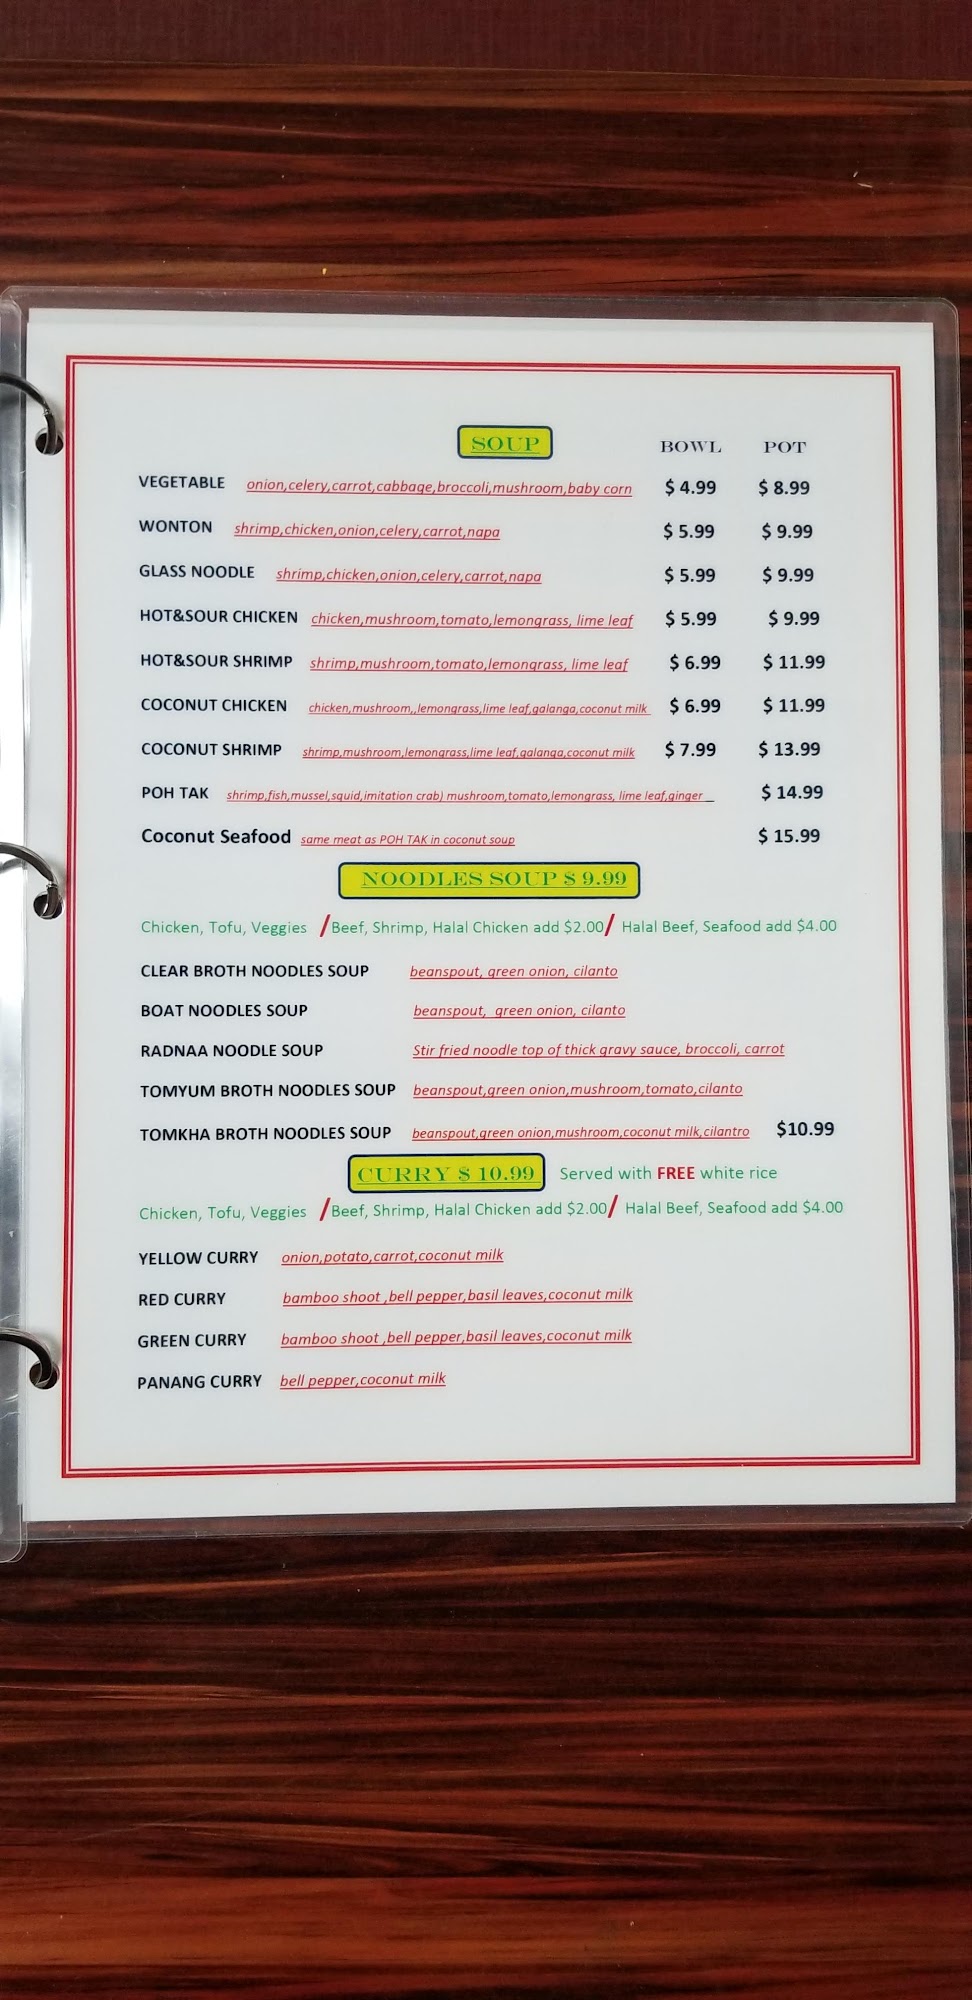 SOUP BOWL POT
VEGETABLE onion,celery,carrot,cabbage,broccoli,mushroom,baby corn $ 4.99 $ 8.99
WONTON shrimp,chicken,onion,celery,carrot,napa $ 5.99 $ 9.99
GLASS NOODLE shrimp,chicken,onion,celery,carrot,napa $ 5.99 $ 9.99
HOT&SOUR CHICKEN chicken,mushroom,tomato,lemongrass, lime leaf $ 5.99 $ 9.99
HOT&SOUR SHRIMP shrimp,mushroom,tomato,lemongrass, lime leaf $ 6.99 $ 11.99
COCONUT CHICKEN chicken,mushroom,,lemongrass,lime leaf,galanga,coconut milk $ 6.99 $ 11.99
COCONUT SHRIMP shrimp,mushroom,lemongrass,lime leaf,galanga,coconut milk $ 7.99 $ 13.99
POH TAK shrimp,fish,mussel,squid,imitation crab) mushroom,tomato,lemongrass, lime leaf,ginger $ 14.99
Coconut Seafood same meat as POH TAK in coconut soup $ 15.99
NOODLES SOUP $ 9.99
Chicken, Tofu, Veggies /Beef, Shrimp, Halal Chicken add $2.00/ Halal Beef, Seafood add $4.00
CLEAR BROTH NOODLES SOUP beanspout, green onion, cilanto
BOAT NOODLES SOUP beanspout, green onion, cilanto
RADNAA NOODLE SOUP Stir fried noodle top of thick gravy sauce, broccoli, carrot
TOMYUM BROTH NOODLES SOUP beanspout,green onion,mushroom,tomato,cilanto
TOMKHA BROTH NOODLES SOUP beanspout,green onion,mushroom,coconut milk,cilantro $10.99
CURRY $ 10.99 Served with FREE white rice
Chicken, Tofu, Veggies /Beef, Shrimp, Halal Chicken add $2.00/ Halal Beef, Seafood add $4.00
YELLOW CURRY onion,potato,carrot,coconut milk
RED CURRY bamboo shoot ,bell pepper,basil leaves,coconut milk
GREEN CURRY bamboo shoot ,bell pepper,basil leaves,coconut milk
PANANG CURRY bell pepper,coconut milk